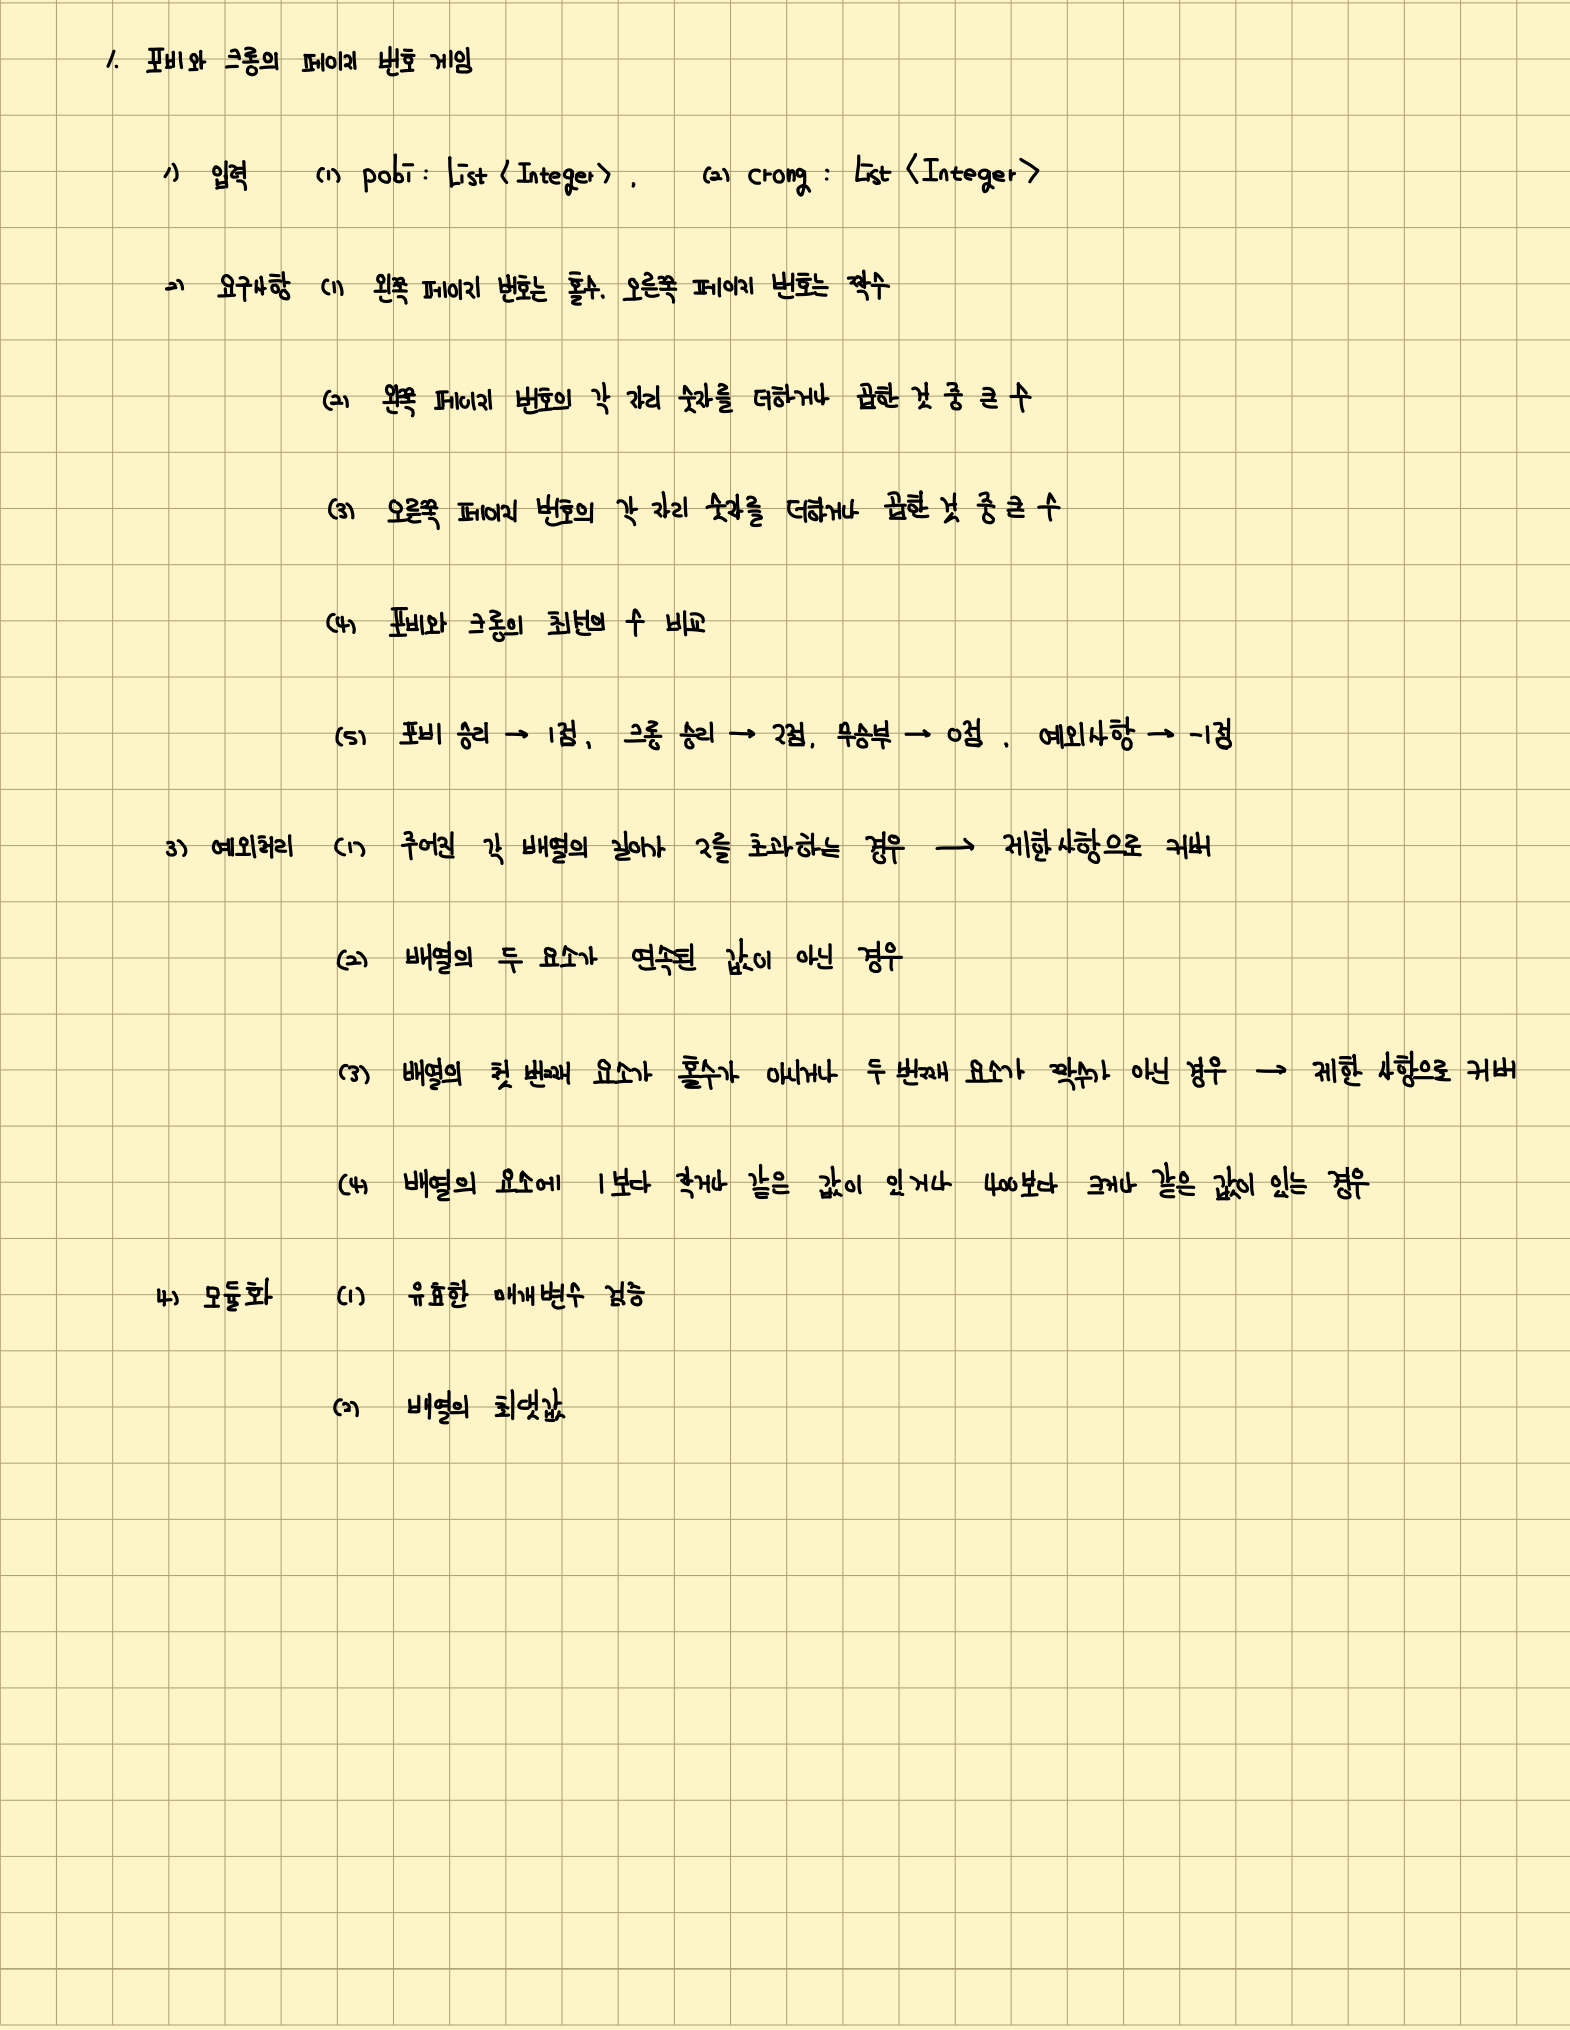 1. 포비와 크롱의 페이지 번호 게임
1) 입력 (1) pobi : List <Integer>, (2) crong : List <Integer>
2) 요구사항 (1) 왼쪽 페이지 번호는 홀수, 오른쪽 페이지 번호는 짝수
(2) 왼쪽 페이지 번호의 각 자리 숫자를 더하거나 곱한 것 중 큰 수
(3) 오른쪽 페이지 번호의 각 자리 숫자를 더하거나 곱한 것 중 큰 수
(4) 포비와 크롱의 수 비교
(5) 포비 승리 → 1점, 크롱 승리 → 2점, 무승부 → 0점, 예외사항 → -1점
3) 예외처리 (1) 주어진 각 배열의 길이가 2를 초과하는 경우 → 제한사항으로 커버
(2) 배열의 두 요소가 연속된 값이 아닌 경우
(3) 배열의 첫 번째 요소가 홀수가 아니거나 두 번째 요소가 짝수가 아닌 경우 → 제한 사항으로 커버
(4) 배열의 요소에 1보다 작거나 같은 값이 있거나 400보다 크거나 같은 값이 있는 경우
4) 모듈화 (1) 유효한 매개변수 검증
(2) 배열의 최댓값